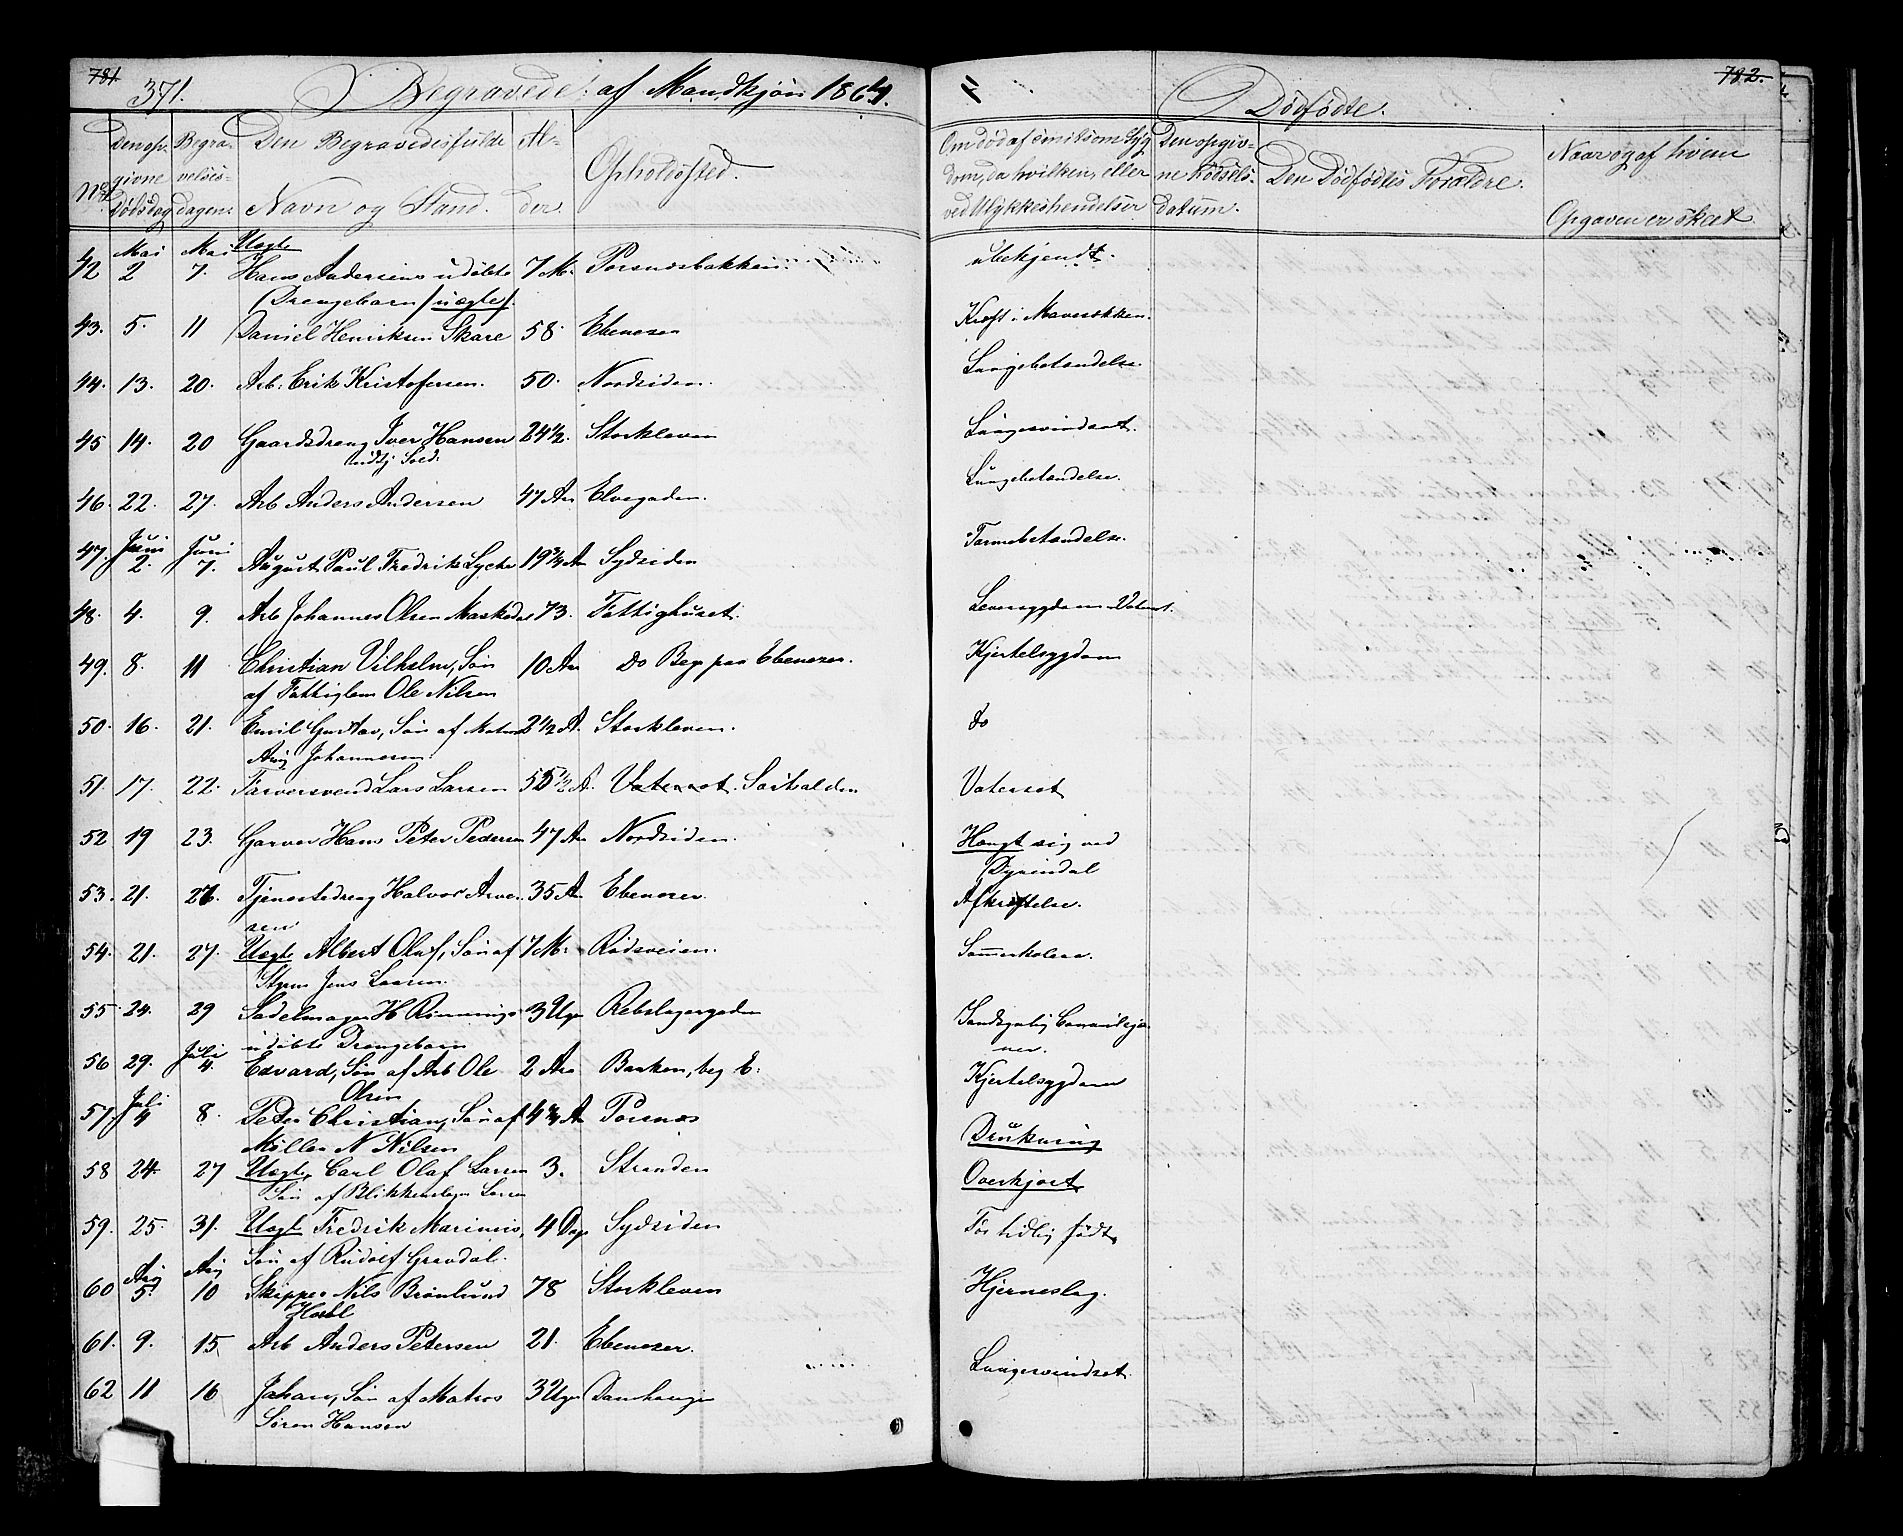 781
371.
Begravede af Mandkjøn 1864.
No.
Den op-
givne
Dødsdag
Begra-
velses-
dagen.
Den Begravedes fulde
Navn og Stand.
Al-
der.
Opholdssted.
42 Mai 2 Mai 7. Uægte Hans Andersens udøbte 7 M. Porsnæsbakken.
Drengebarn /uægte/.
43. 5. 11 Daniel Henriksen Skare 58. Ebenezer
44. 13. 20. Arb. Erik Kristofersen. 50. Nordsiden.
45 14. 20 Gaardsdreng Iver Hansen 24 1/2. Storkleven
46. 22. 27. Arb Anders Andersen 47 Aar Elvegaden.
47. Juni 2. Juni 7. August Paul Fredrik Lycke 19 3/4 A Sydsiden
48. 4. 9. Arb Johannes Olsen 73. Fattighuset.
49. 8. 11 Christian Vilhelm, Søn 10 Aar Do Beg paa Ebenezer.
af Fattiglem Ole Nilsen
50. 16. 21. Emil Gustav, Søn af 2 1/2 A. Storkleven.
Aug Johannesen
51. 17. 22. Farversvend Lars Larsen 55 1/2 A. Vatersot.
52 19 23. Garver Hans Peter Pedersen 47 Aar Nordsiden.
53. 21. 26. Tjenestedreng Halvor 35 A Ebenezer.
sen
54. 21. 27. Uægte Albert Olaf, Søn af 7 M. Rødsveien.
Jens Larsen.
55 24. 29 Sadelmager H Rønnings 3 Uger Rebslagergaden
udøbte Drengebarn
56 29. Juli 4. Edvard, Søn af Arb Ole 2 Aar Banken, beg E.
Olsen
57. Juli 4 8. Peter Christian, Søn af 4 3/4 A Porsnæs
Møller N Nilsen
58 24. 27 Uægte Carl Olaf Larsen 3. Stranden
Søn af Blikkenslager Larsen
59. 25. 31. Uægte Fredrik Marinius, 4 Dage Sydsiden
Søn af Rudolf Gravdal.
60 Aug 5. Aug 10 Skipper Nils Brønlund 78 Storkleven
61. 9. 15 Arb Anders Petersen 21. Ebenezer.
62 11 16 Johan, Søn af Matros 3 Uger Damhaugen
Søren Hansen
782.
Dødfødte.
Om død af smitsom Syg
dom, da hvilken, eller
ved Ulykkeshendelser
Den opgiv-
ne Fødsels-
datum.
Den Dødfødtes Forældre.
Naar og af hvem
Opgaven er skeet
ubekjendt.
Kræft i Mavesækken.
Lungebetændelse.
Lungesvindsot.
Lungebetændelse.
Tarmebetændelse.
Leversygdom Vatersot.
Kjertelsygdom
Do
Vatersot
Hængt sig ved
Afkræftelse.
Sommerkolera.
Kjertelsygdom
Drukning
Overkjørt
For tidlig født
Hjerneslag.
Lungesvindsot.